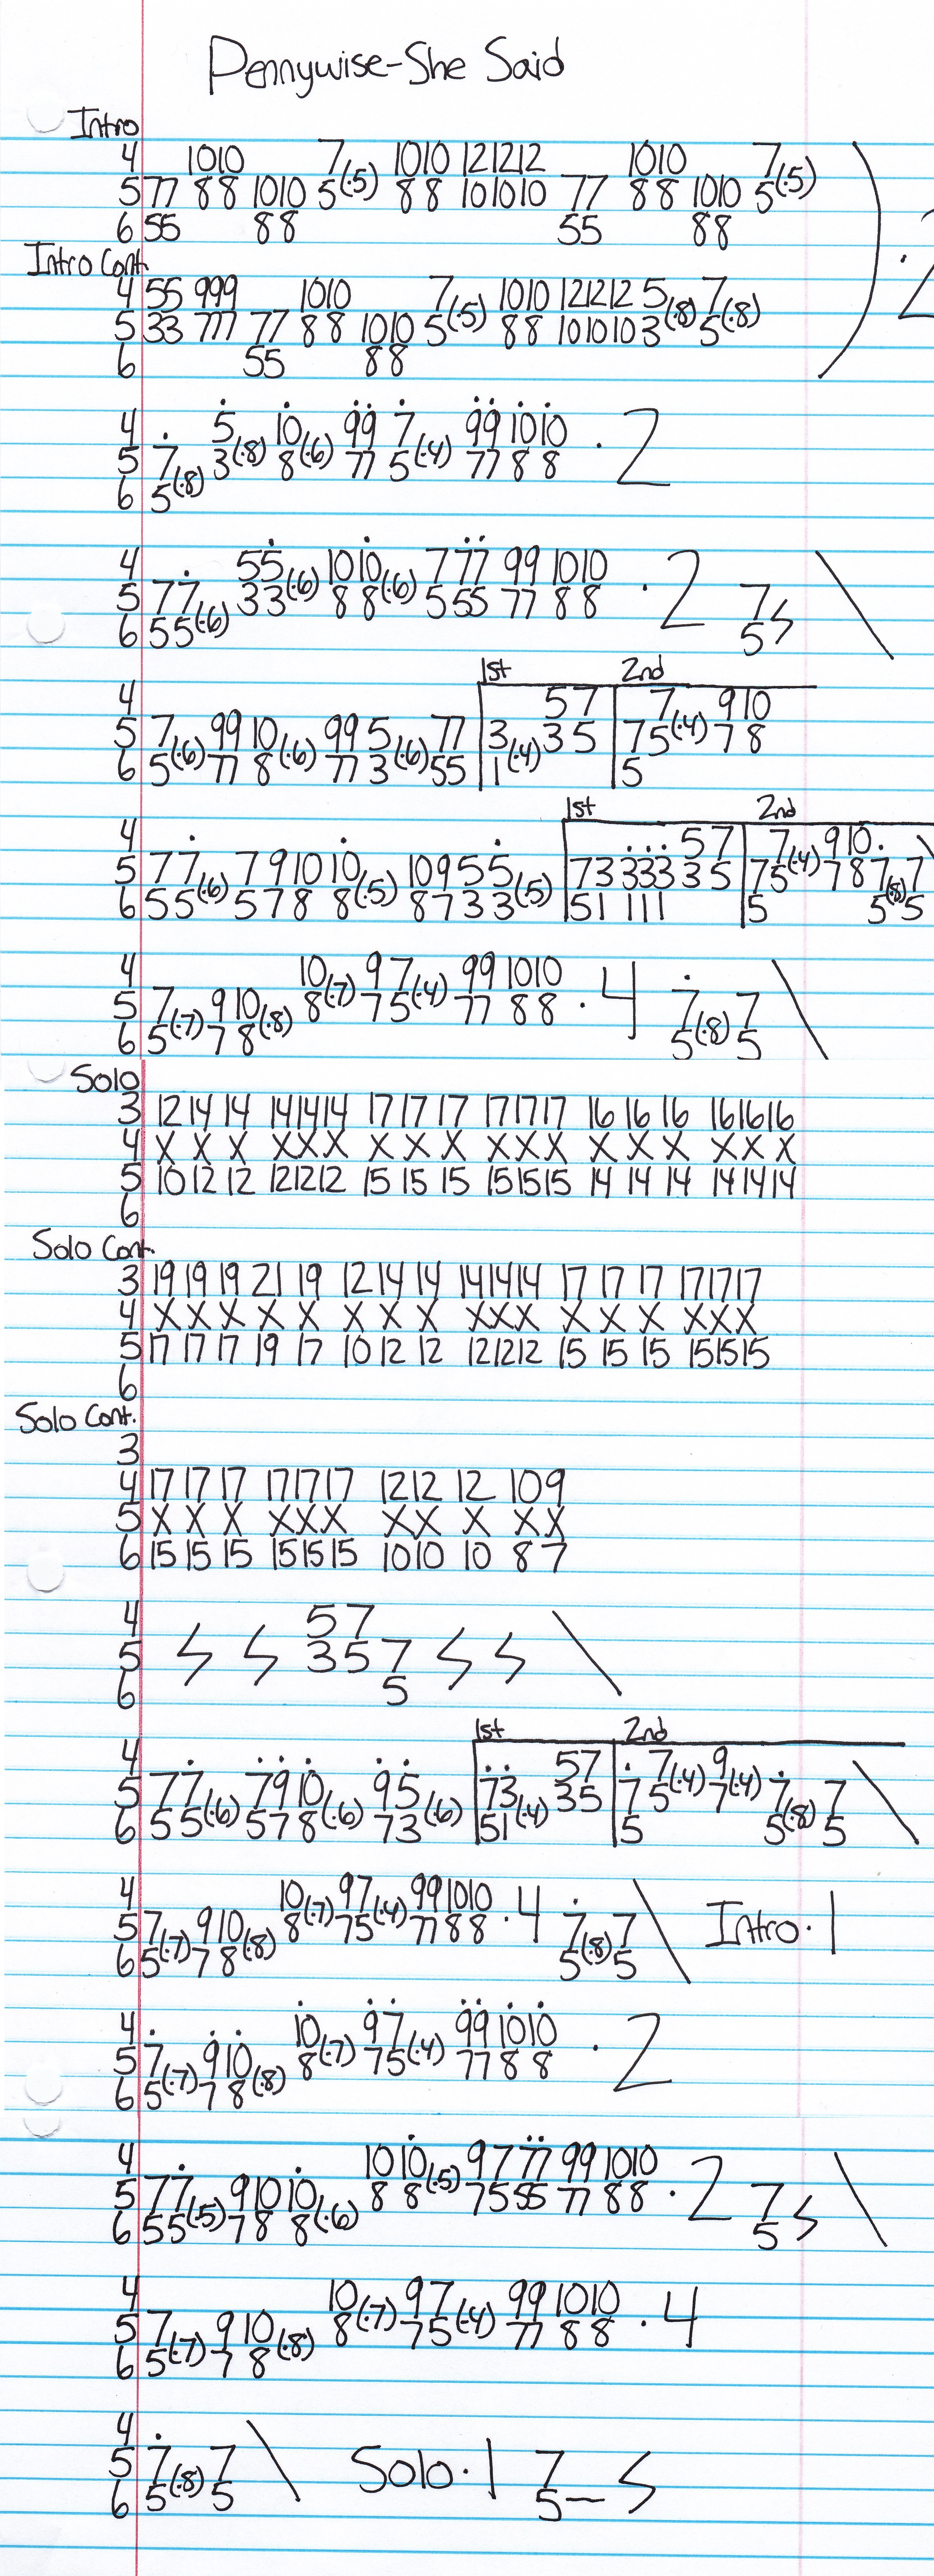 Pennywise-She Said
Intro
4 1010 7(·5) 1010 121212 1010 7(·5)
5 77 88 1010 5 88 101010 77 88 1010 5
6 55 88 55 88
) · 2
Intro Cont.
4 55 999 1010 7(·5) 1010 121212 5(·8) 7(·8)
5 33 777 77 88 1010 5 88 101010 3 5
6 55 88
4 5(·8) 10(·6) 99 7(·4) 99 1010 · 2
5 7(·8) 3 8 77 5 77 8 8
6 5
4 55(·6) 1010(·6) 777 99 1010 · 2
5 77(·6) 33 88 555 77 88 7 S \
6 55 5
1st 2nd
4 57 7(·4) 910
5 7(·6) 99 10(·6) 99 5(·6) 77 3(·4) 35 75 78
6 5 77 8 77 3 55 1 5
1st 2nd
4 57 7(·4) 910
5 77(·6) 791010(·5) 10955(·5) 73333 35 75 78 7(·8) 7 \
6 55 5788 8733 51 111 5 5 5
4 10(·7) 97(·4) 99 1010 · 4
5 7(·7) 910(·8) 8 75 77 88 7(·8) 7 \
6 5 78 5 5
Solo
3 12 14 14 141414 17 17 17 171717 16 16 16 161616
4 X X X XXX X X X XXX X X X XXX
5 10 12 12 121212 15 15 15 151515 14 14 14 141414
6
Solo Cont.
3 19 19 19 21 19 12 14 14 141414 17 17 17 171717
4 X X X X X X X X XXX X X X XXX
5 17 17 17 19 17 10 12 12 121212 15 15 15 151515
6
Solo Cont.
3
4 17 17 17 171717 1212 12 109
5 X X X XXX XX X XX
6 15 15 15 151515 1010 10 87
4 57
5 S S 35 7 S S \
6 5
1st 2nd
4 57 7(·4) 9(·4)
5 77(·6) 7910(·6) 95(·6) 73(·4) 35 75 7 7(·8) 7 \
6 55 578 73 51 5 5 5
4 10(·7) 97(·4) 991010 · 4
5 7(·7) 910(·8) 8 75 7788 7(·8) 7 \ Intro · 1
6 5 78 5 5
4 10(·7) 97(·4) 99 1010 · 2
5 7(·7) 910(·8) 8 75 77 88
6 5 78
4 1010(·5) 97 77 99 1010 · 2
5 77(·5) 91010(·6) 88 75 55 77 88 7 S \
6 55 788 5
4 10(·7) 97(·4) 99 1010 · 4
5 7(·7) 910(·8) 8 75 77 88
6 5 78
4
5 7(·8) 7 \ Solo · 1 7 S
6 5 5 5–